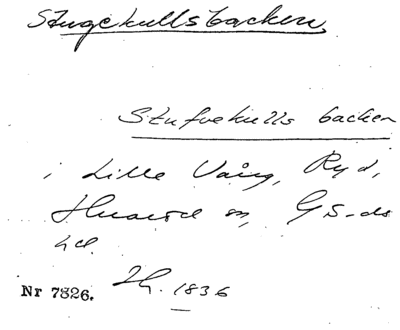 Stugekullsbacken
Stufvekulls backen
i Lille Vång, Ryd,
sn, Gs-ds
hd.
Nr 7826. Lh. 1836